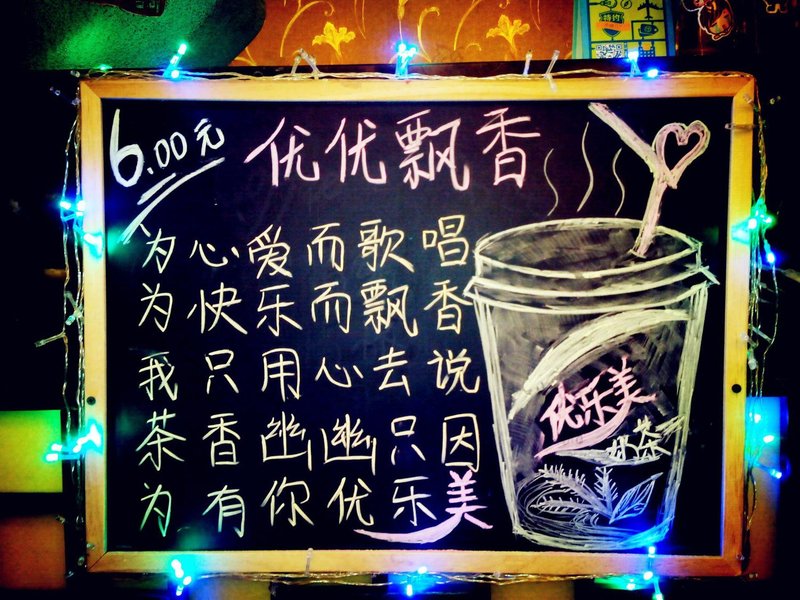 6.00元
优优飘香
为心爱而歌唱
为快乐而飘香
我只用心去说
茶香幽幽只因
为有你优乐美
优乐美
奶茶
特约